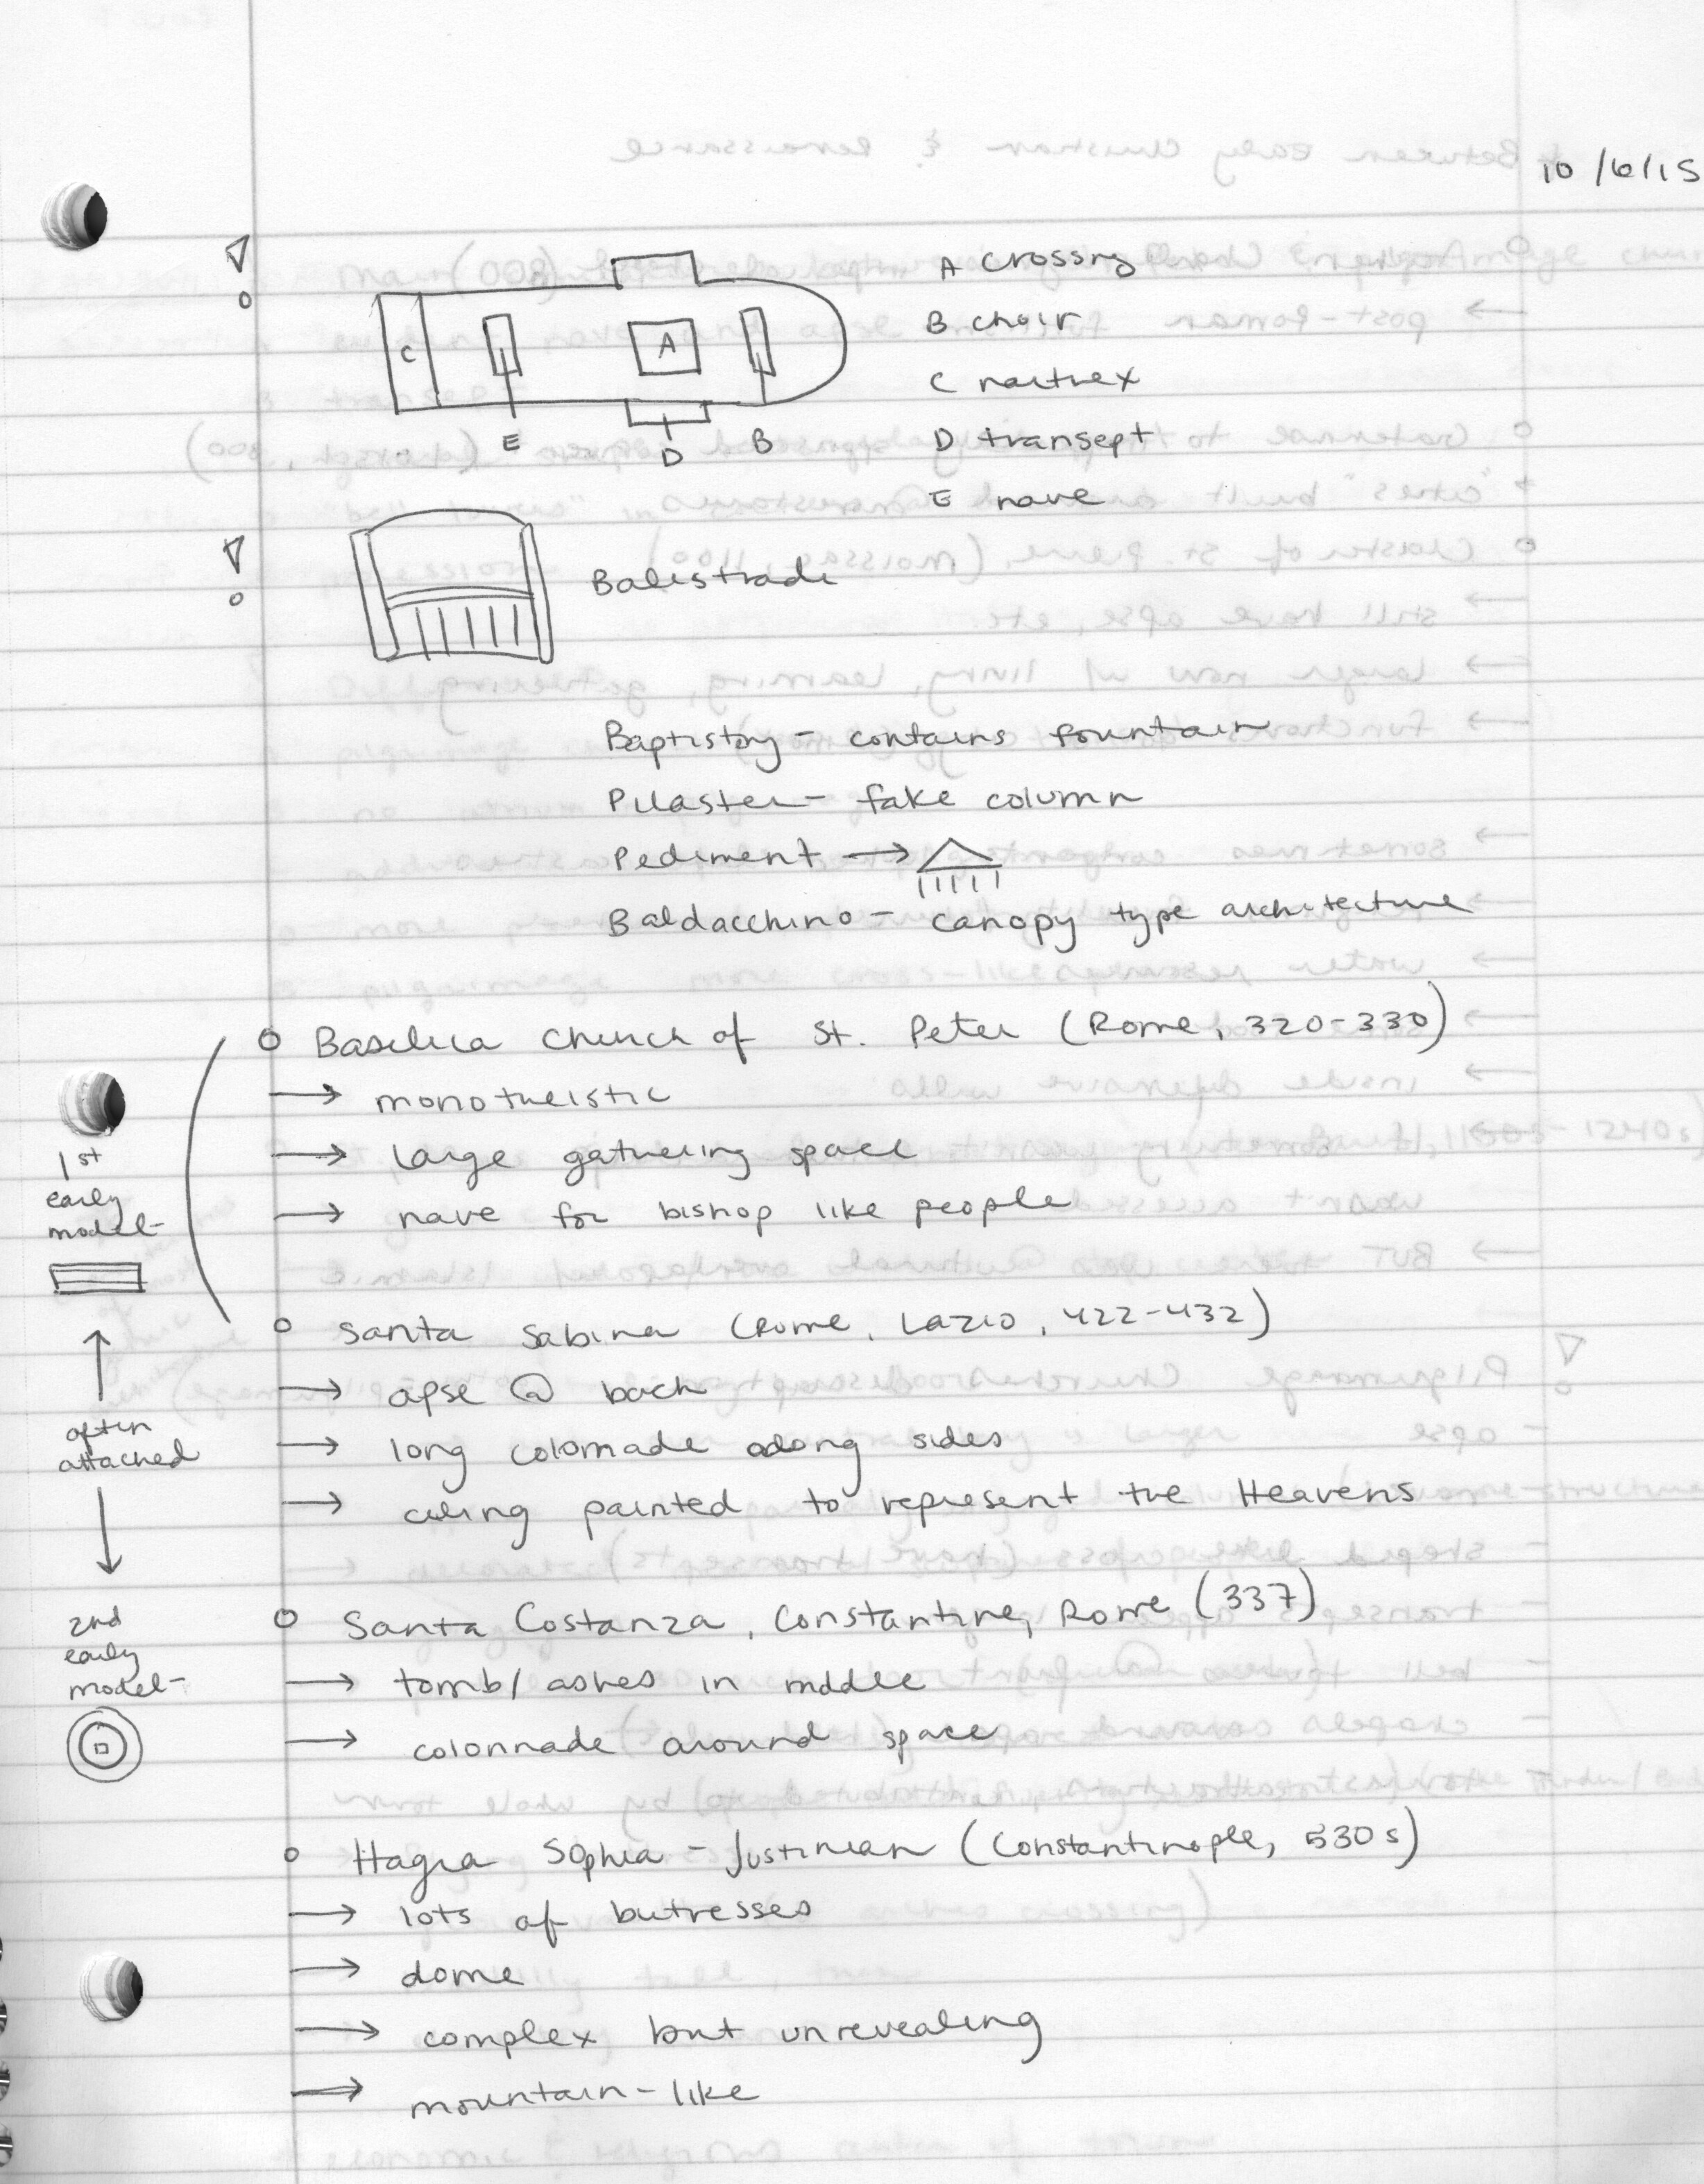 10/6/15
A crossing
B choir
C narthex
D transept
E nave
C
A
E
D
B
Balistrade
Baptistry - contains fountain
Pilaster - fake column
Pediment →
Baldacchino - canopy type architecture
o Basilica Church of St. Peter (Rome, 320-330)
→ monotheistic
→ large gathering space
→ nave for bishop like people
1st
early
model-
o Santa Sabina (Rome, Lazio, 422-432)
→ apse @ back
→ long colonnade along sides
→ ceiling painted to represent the Heavens
often
attached
o Santa Costanza, Constantine, Rome (337)
→ tomb/ashes in middle
→ colonnade around space
2nd
early
model-
o Hagia Sophia - Justinian (Constantinople, 530s)
→ lots of butresses
→ dome
→ complex but unrevealing
→ mountain-like